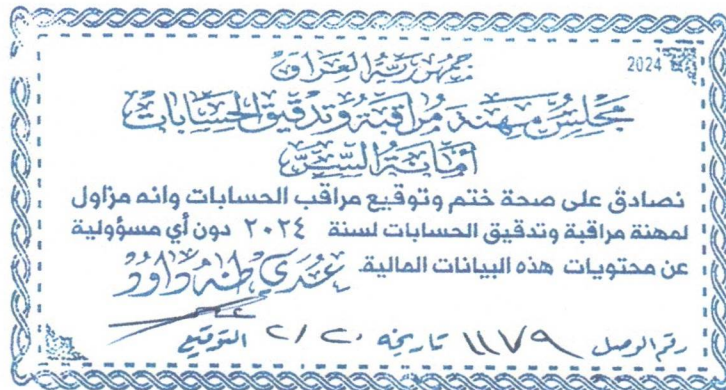 2024
جمهورية العراق
مجلس مهنة مراقبة وتدقيق الحسابات
أمانة السر
نصادق على صحة ختم وتوقيع مراقب الحسابات وانه مزاول
لمهنة مراقبة وتدقيق الحسابات لسنة ٢٠٢٤ دون أي مسؤولية
عن محتويات هذه البيانات المالية. عدي طه داود
رقم الوصل ١١٧٩ تاريخه ٢/٢٠ التوقيع